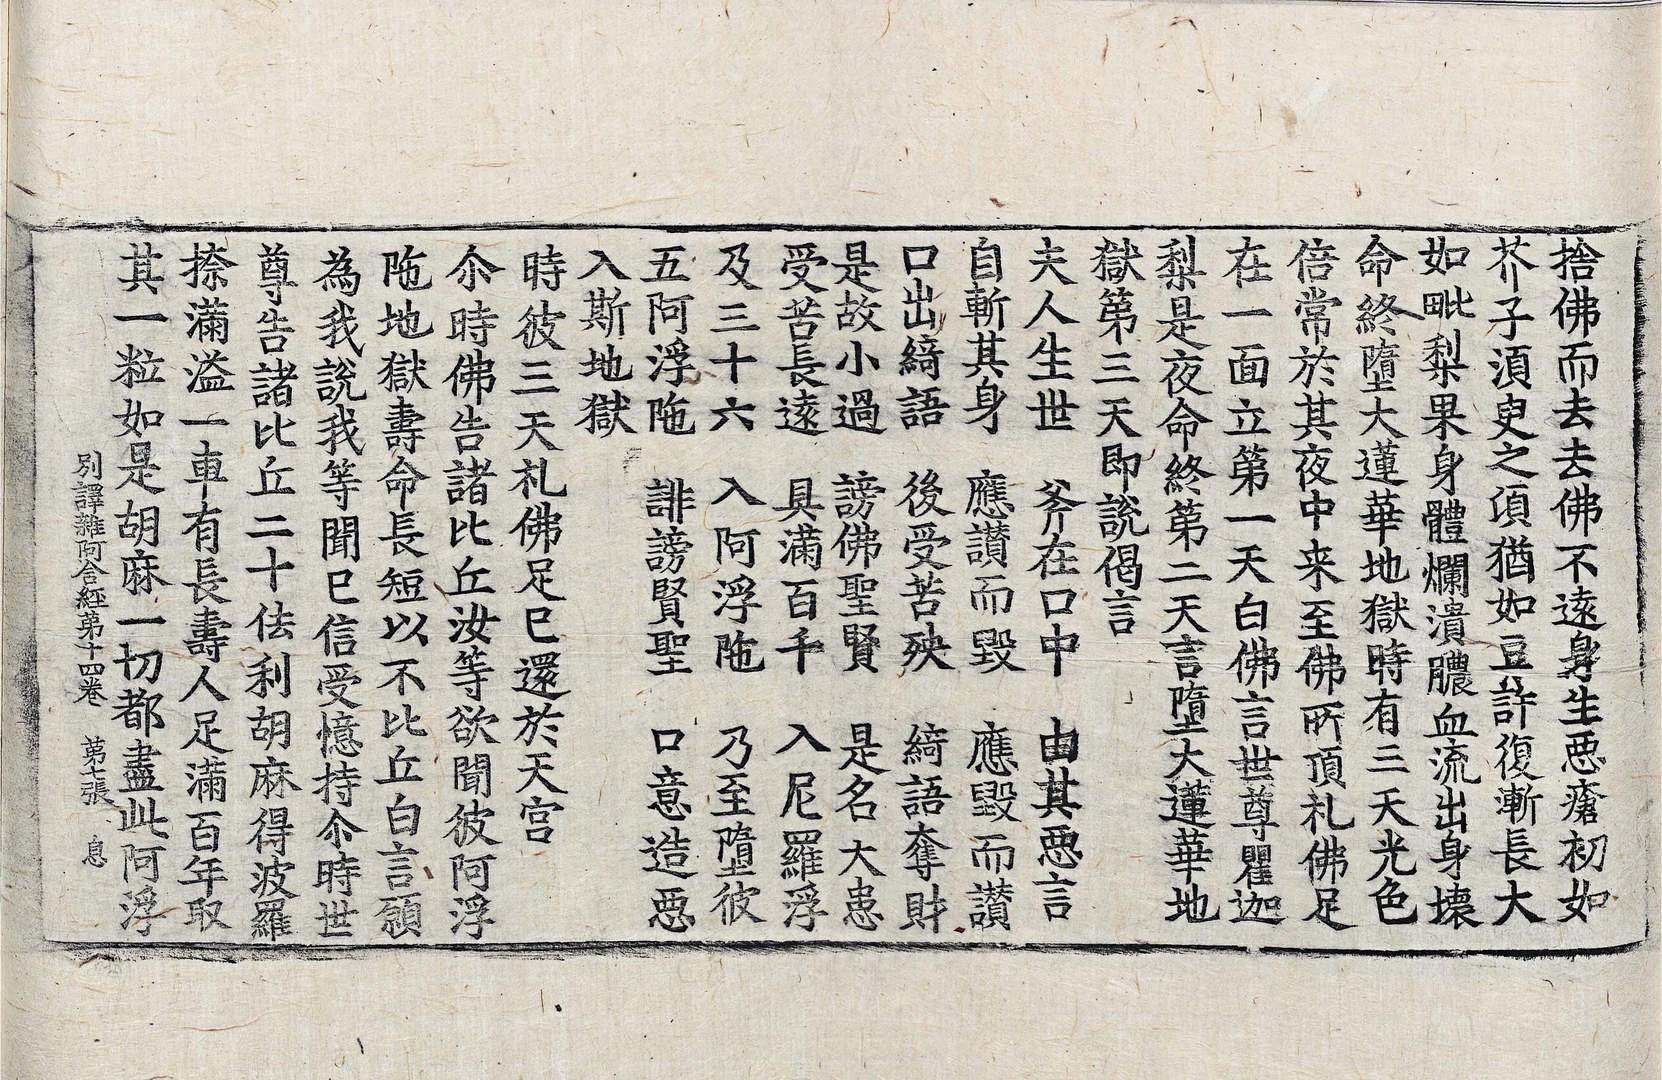 捨佛而去去佛不遠身生惡瘡初如
芥子湏臾之頃猶如豆許復漸長大
如毗梨果身體爛潰膿血流出身壞
命終墮大蓮華地獄時有三天光色
倍常於其夜中来至佛所頂礼佛足
在一面立第一天白佛言世尊瞿迦
梨是夜命終第二天言墮大蓮華地
獄第三天即說偈言
夫人生世　斧在口中　由其惡言
自斬其身　應讃而毀　應毀而讃
口出綺語　後受苦殃　綺語奪財
是故小過　謗佛聖賢　是名大患
受苦長遠　具滿百千　入尼羅浮
及三十六　入阿浮陁　乃至墮彼
五阿浮陁　誹謗賢聖　口意造惡
入斯地獄
時彼三天礼佛足已還於天宮
尒時佛告諸比丘汝等欲聞彼阿浮
陁地獄壽命長短以不比丘白言願
為我說我等聞已信受憶持尒時世
尊告諸比丘二十佉利胡麻得波羅
捺滿溢一車有長壽人足滿百年取
其一粒如是胡麻一切都盡此阿浮
別譯雜阿含經第十四卷　第七張　息